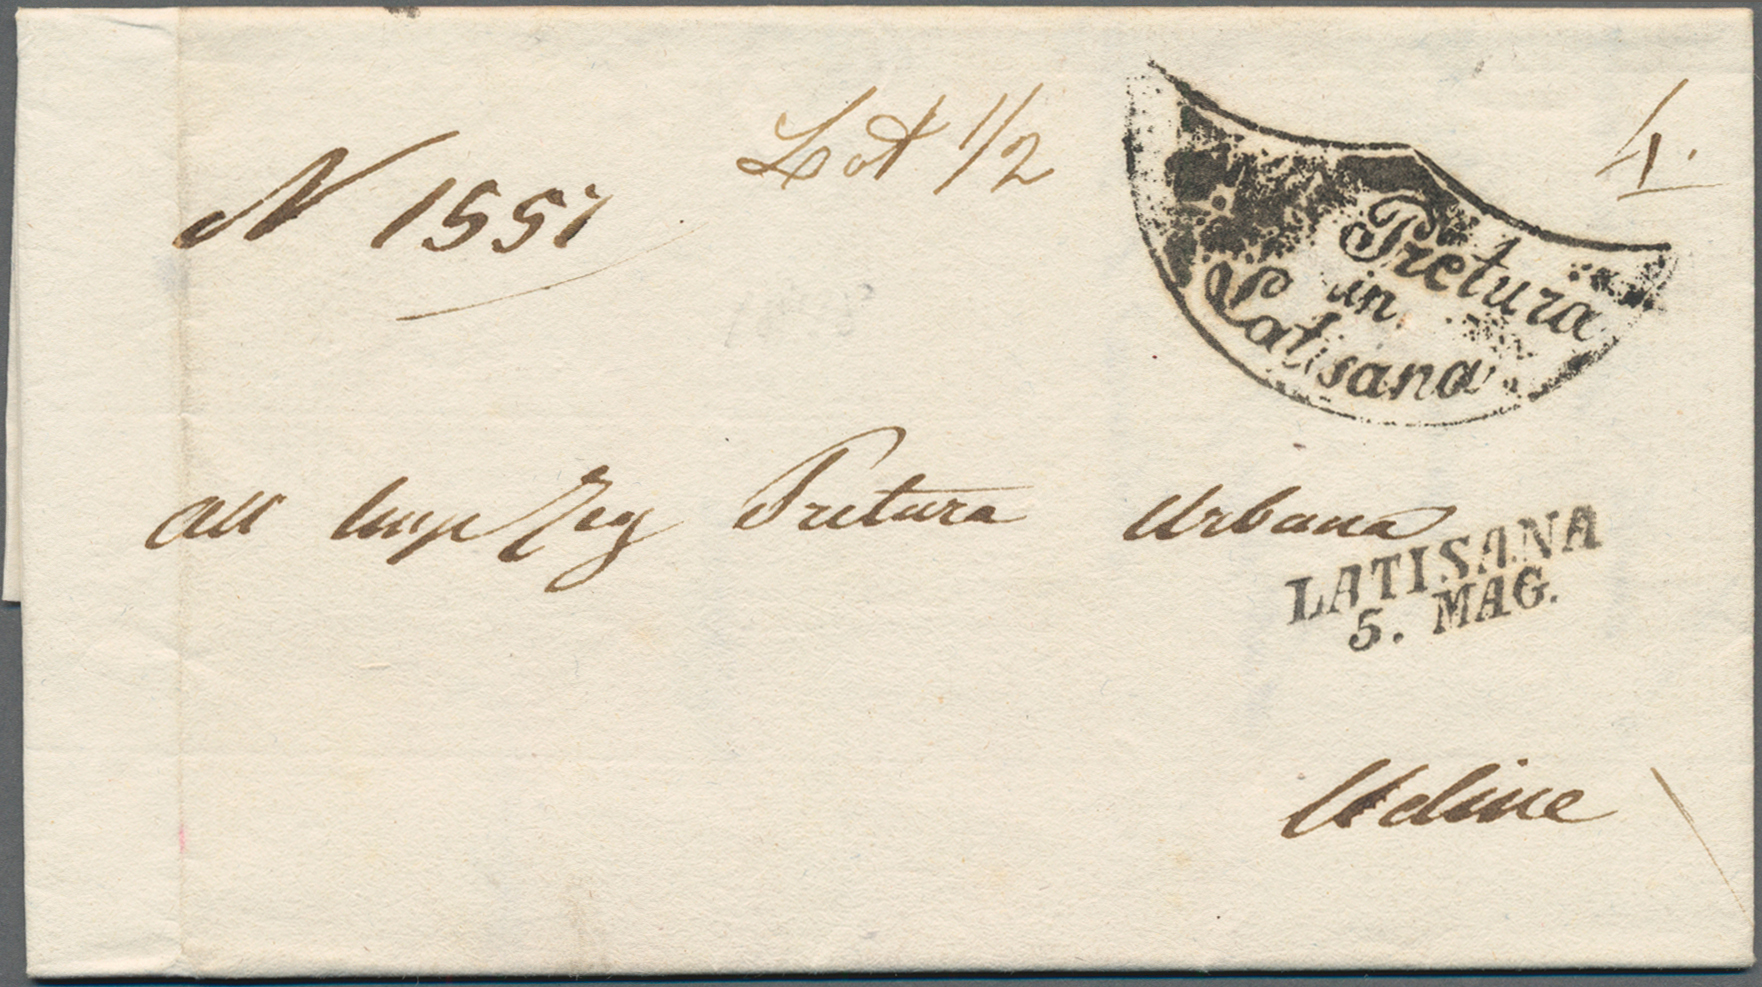 N 1551
Lot 1/2
4.
Pretura
in
Latisana
All Imp Reg Pretura Urbana
LATISANA
5. MAG.
Udine